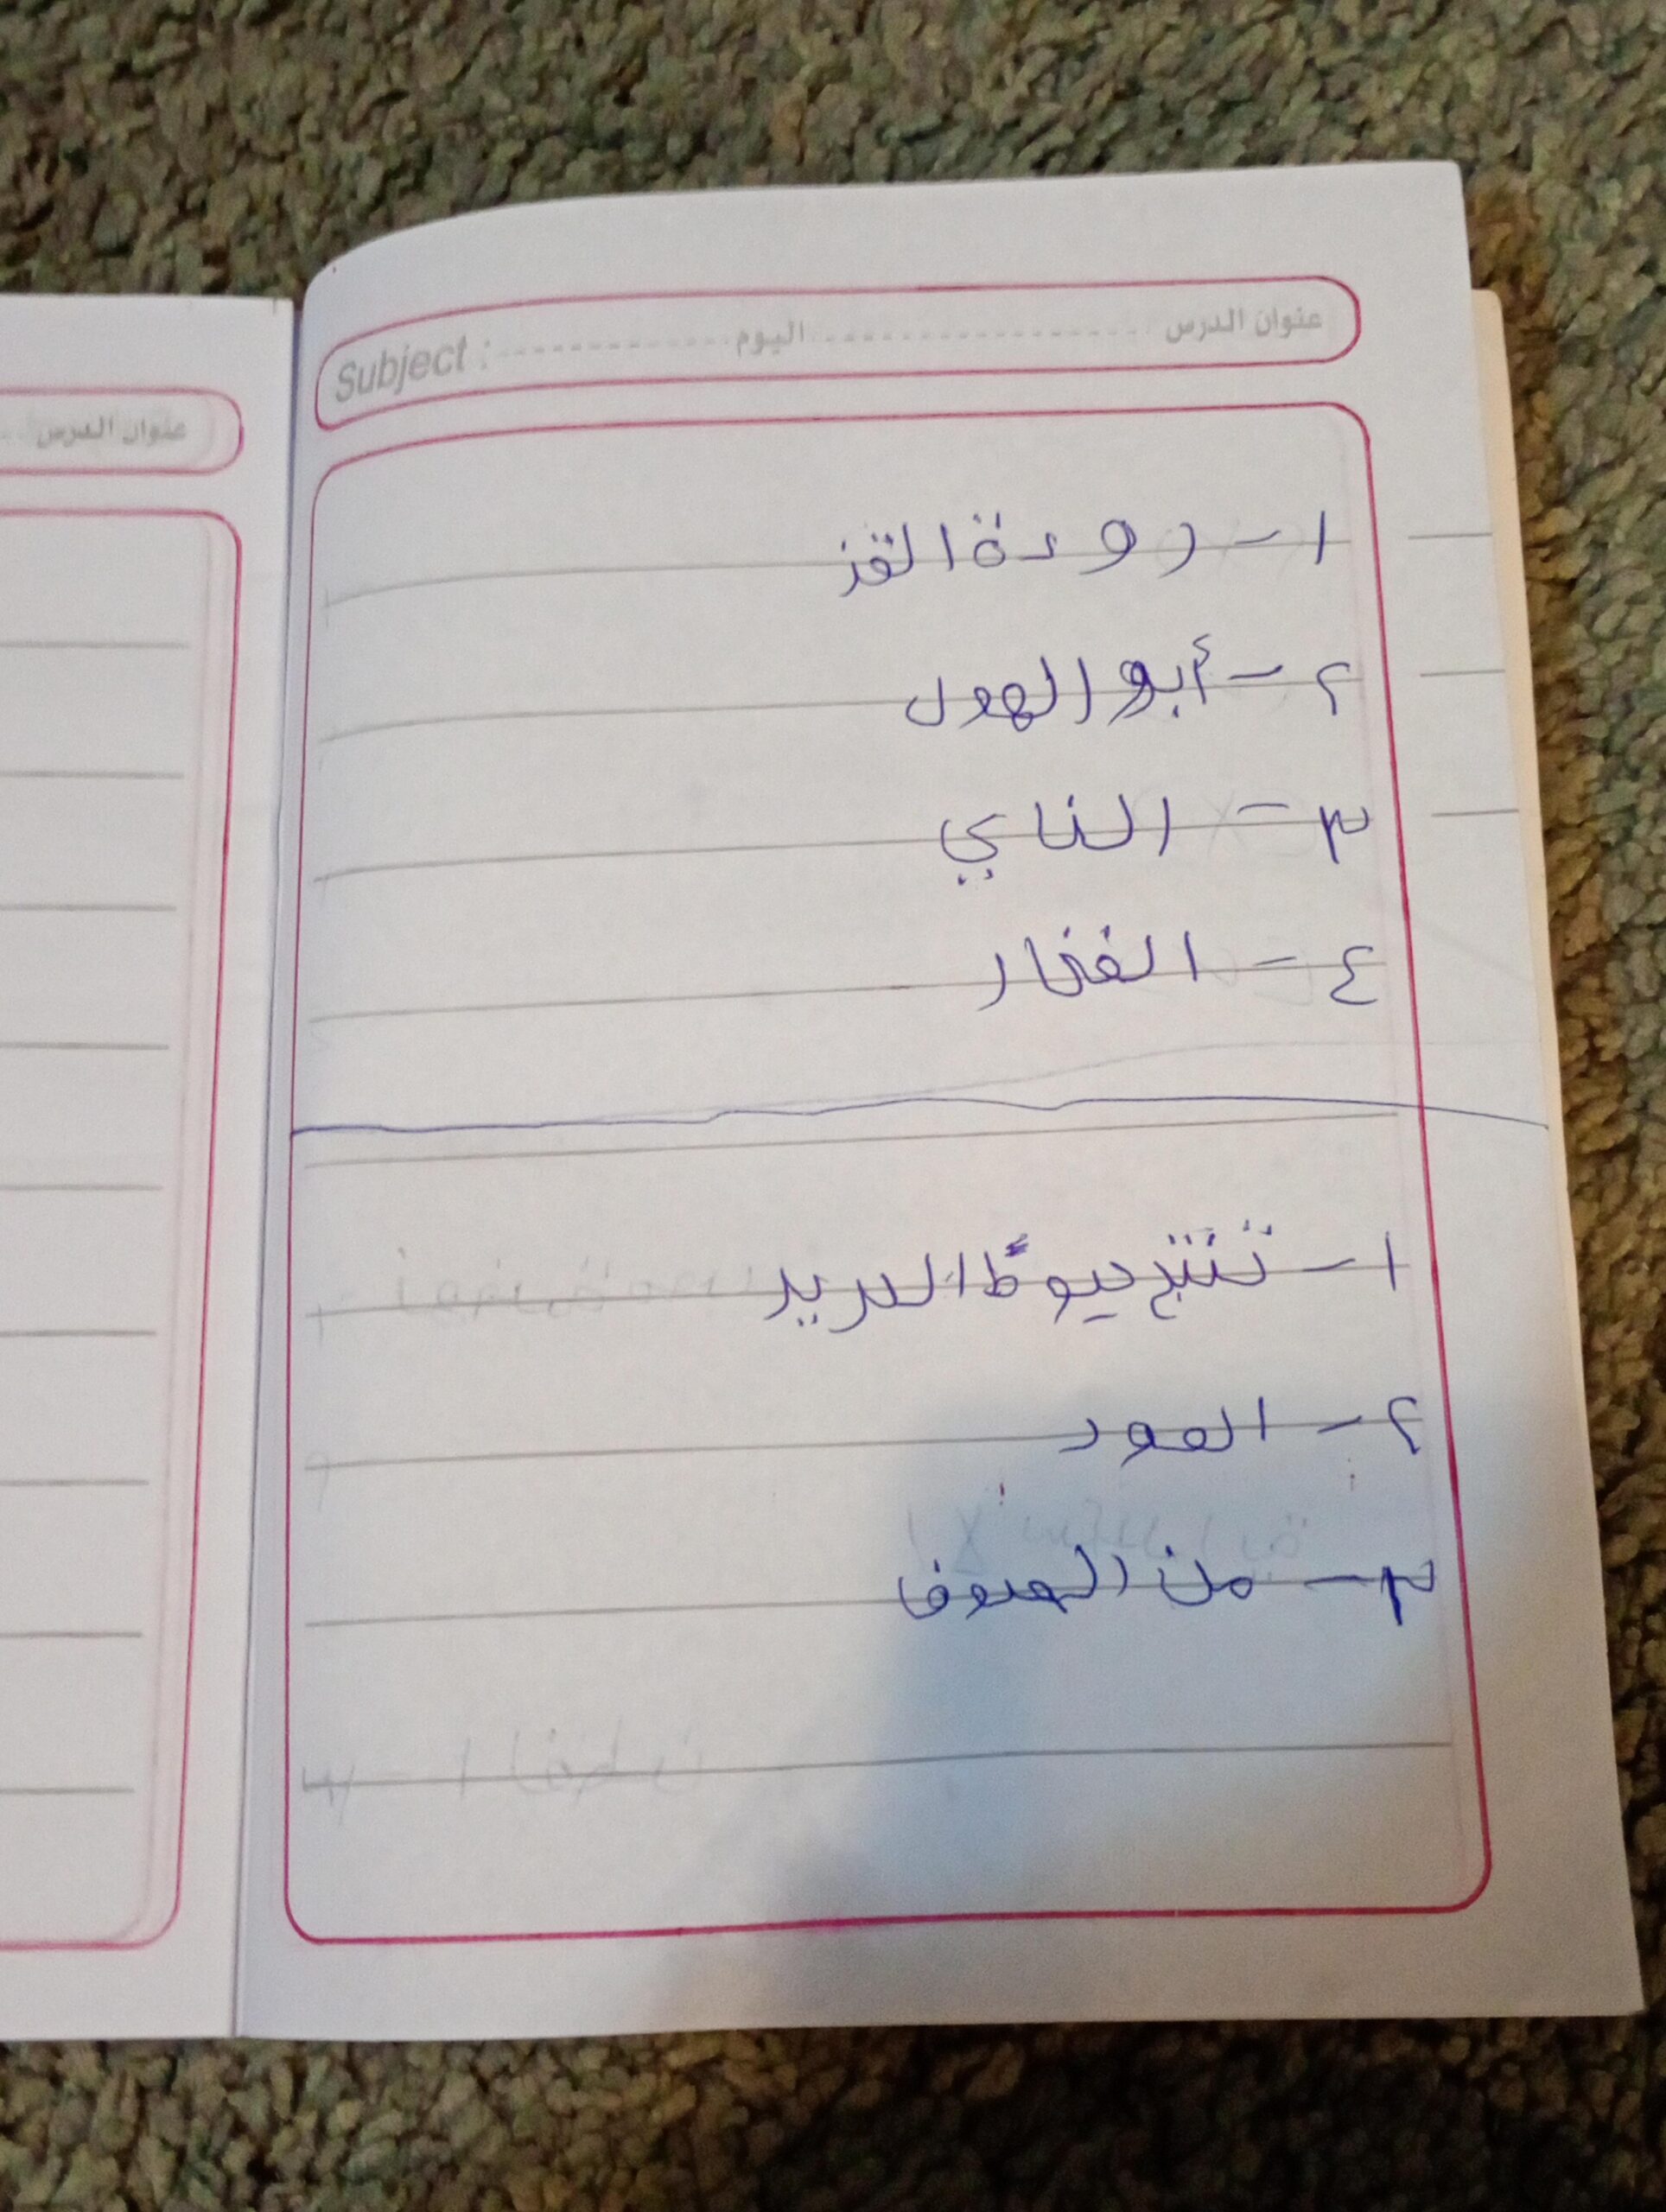 عنوان الدرس اليوم Subject :
١- دودة القز
٢- أبو الهول
٣- الناي
٤- الفخار
١- تنتج خيوطًا الحرير
٢- العود
٣- من الصوف
عنوان الدرس